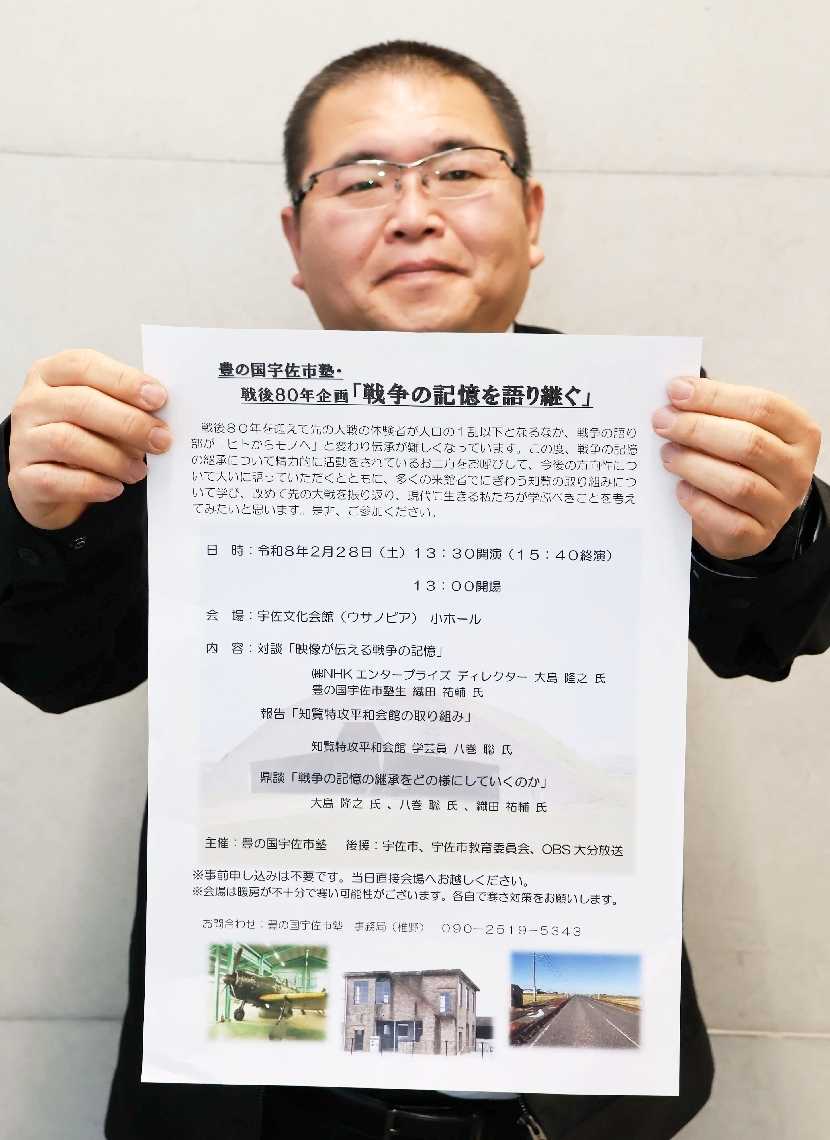 豊の国宇佐市塾・
戦後80年企画「戦争の記憶を語り継ぐ」
戦後80年を迎えて先の大戦の体験者が人口の1割以下となるなか、戦争の語り
部が「ヒトからモノへ」と変わり伝承が難しくなっています。この度、戦争の記憶
の継承について精力的に活動をされているお二方をお呼びして、今後の方向性につ
いて大いに語っていただくとともに、多くの来館者でにぎわう知覧の取り組みにつ
いて学び、改めて先の大戦を振り返り、現代に生きる私たちが学ぶべきことを考え
てみたいと思います。是非、ご参加ください。
日 時：令和8年2月28日（土）13：30開演（15：40終演）
13：00開場
会 場：宇佐文化会館（ウサノピア） 小ホール
内 容：対談「映像が伝える戦争の記憶」
㈱NHKエンタープライズ ディレクター 大島 隆之 氏
豊の国宇佐市塾生 織田 祐輔 氏
報告「知覧特攻平和会館の取り組み」
知覧特攻平和会館 学芸員 八巻 聡 氏
鼎談「戦争の記憶の継承をどの様にしていくのか」
大島 隆之 氏 、八巻 聡 氏 、織田 祐輔 氏
主催：豊の国宇佐市塾 後援：宇佐市、宇佐市教育委員会、OBS大分放送
※事前申し込みは不要です。当日直接会場へお越しください。
※会場は暖房が不十分で寒い可能性がございます。各自で寒さ対策をお願いします。
お問合わせ：豊の国宇佐市塾 事務局（椎野） 090－2519－5343